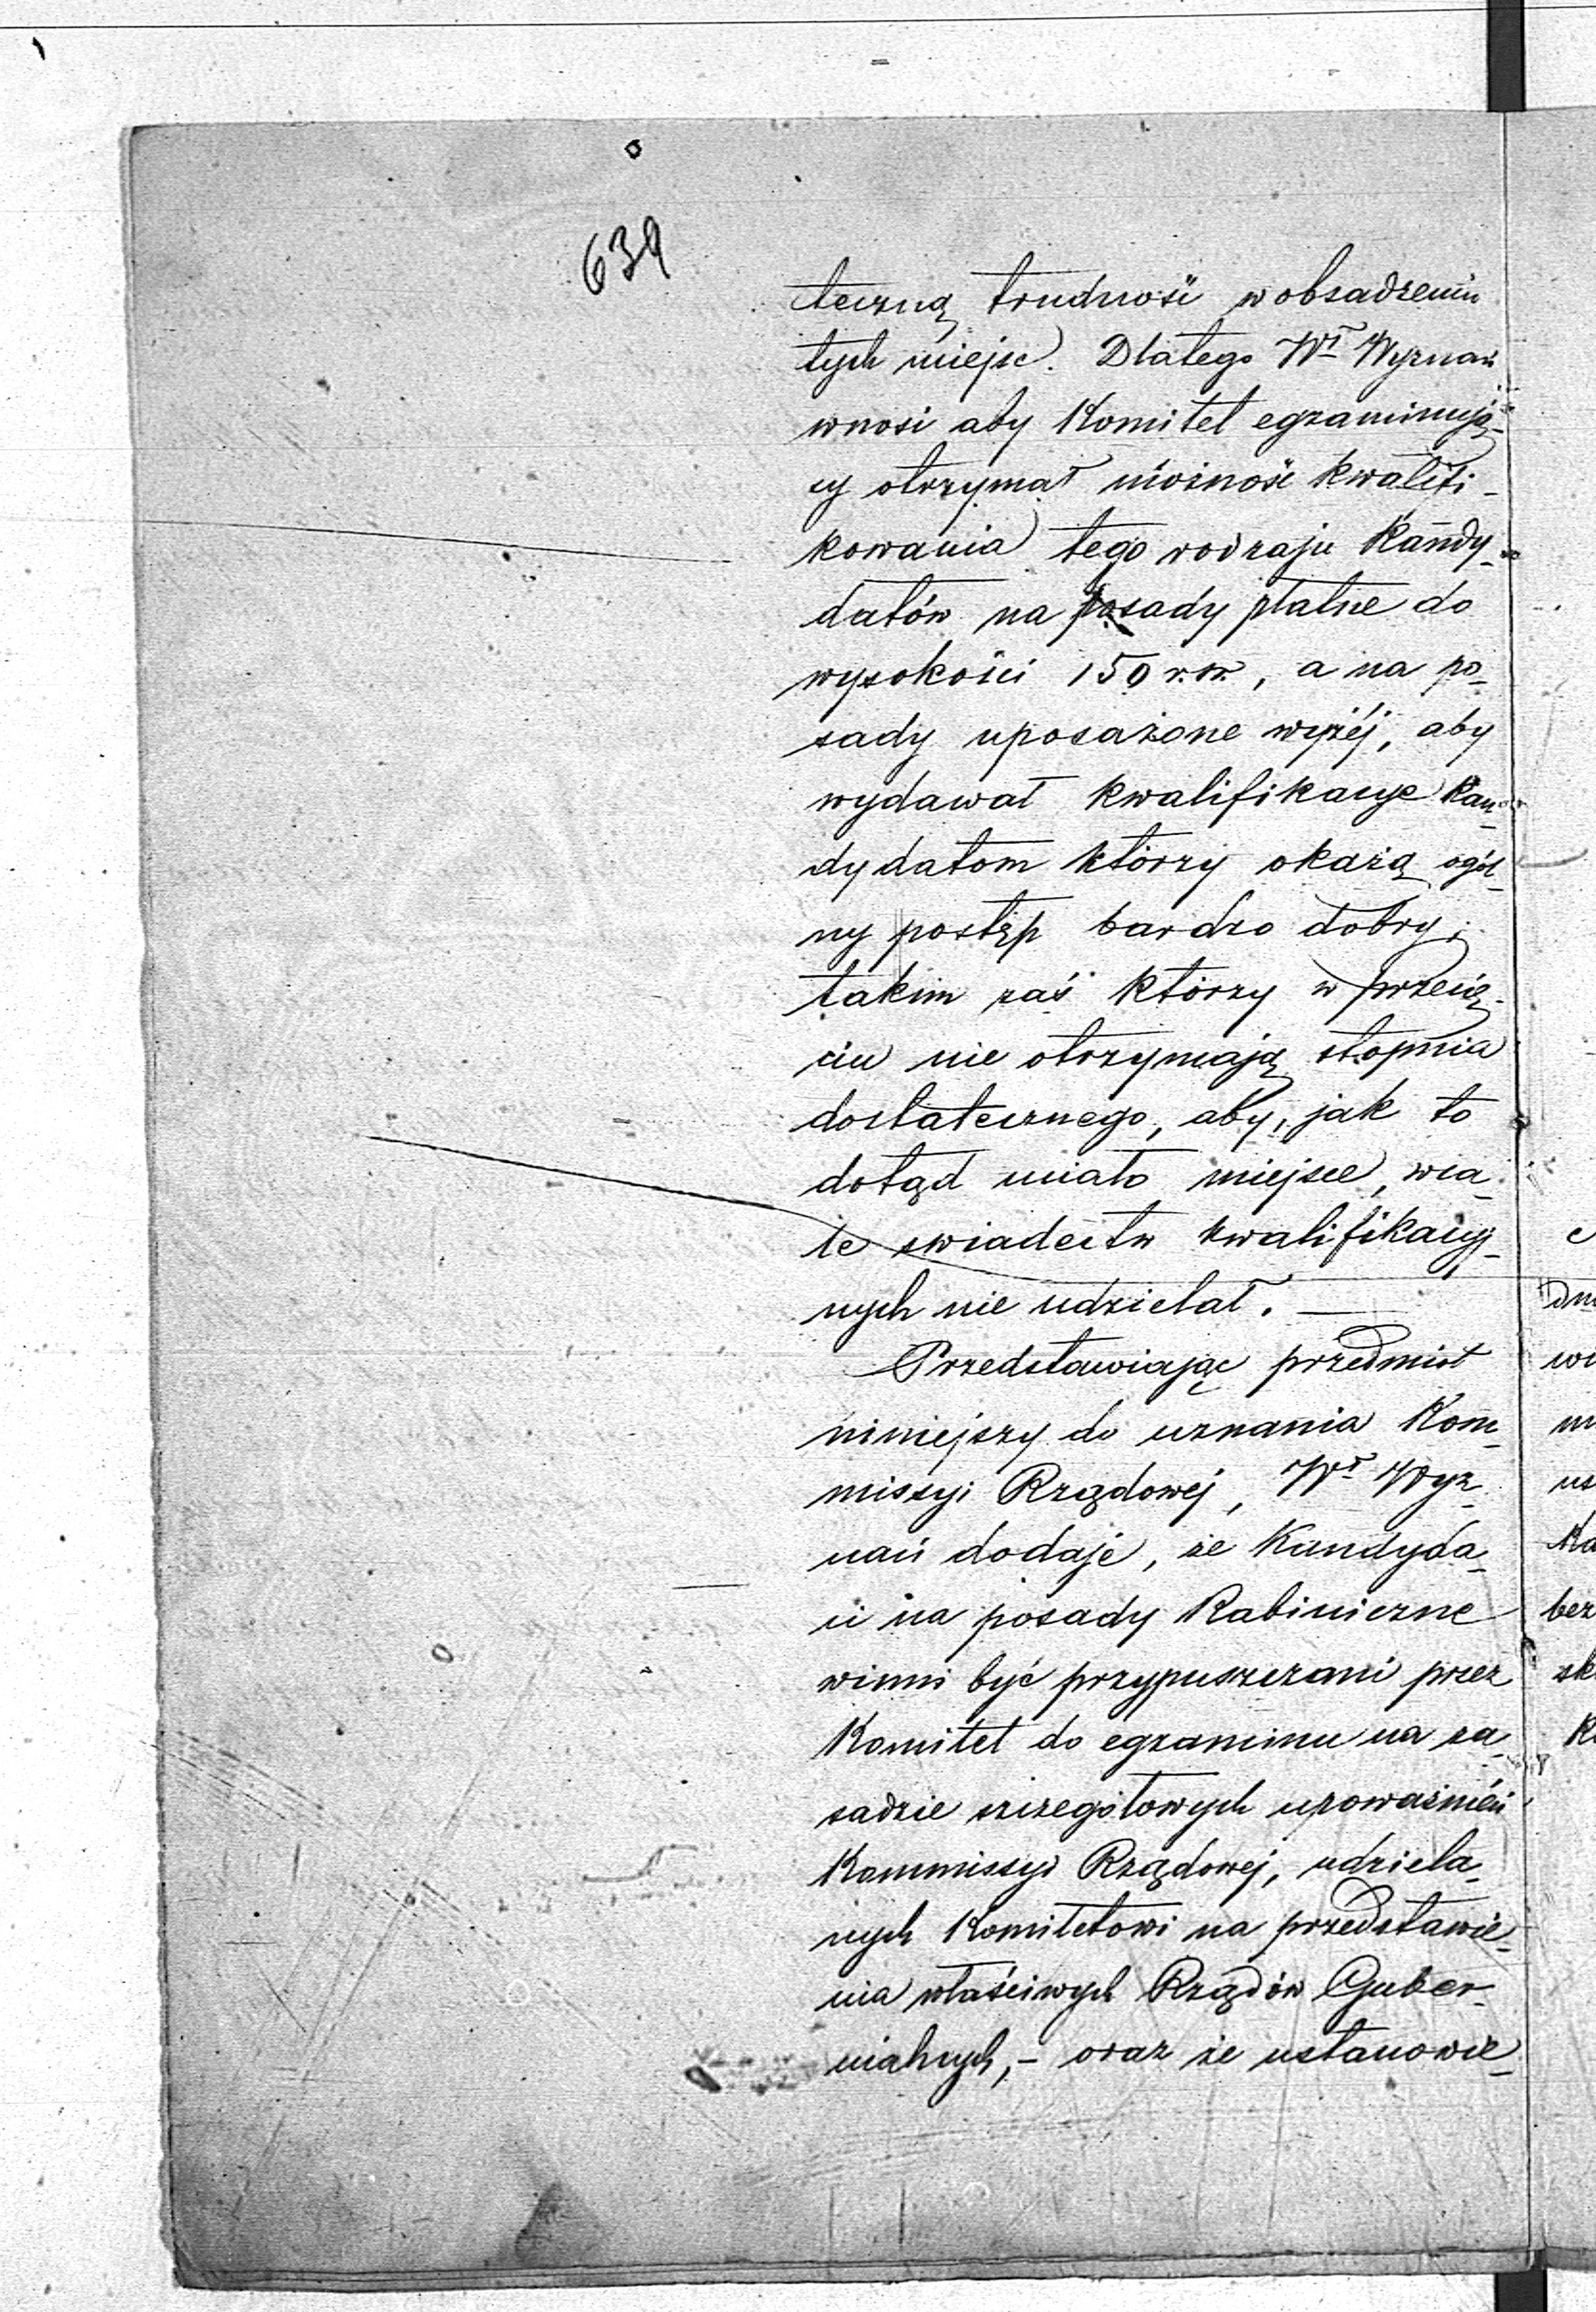 639
teczną trudność w obsadzeniu
tych miejsc. Dlatego Wł Wyznań
wnosi aby Komitet egzaminują-
cy otrzymał możność kwalifi-
kowania tego rodzaju Kandy-
datów na posady płatne do
wysokości 150 r.sr., a na po-
sady uposażone wyżéj, aby
wydawał kwalifikacye kan-
dydatom którzy okażą ogól-
ny postęp bardzo dobry;
takim zaś którzy w przecię-
ciu nie otrzymają stopnia
dostatecznego, aby, jak to
dotąd miało miejsce, wca-
le swiadectw kwalifikacyj-
nych nie udzielał. —
Przedstawiając przedmiot
niniejszy do uznania Kom-
missyi Rządowéj, Wł Wyz-
nań dodaje, że Kandyda-
ci na posady Rabiniczne
winni być przypuszczani przez
Komitet do egzaminu na za-
sadzie szczegółowych upoważnień
Kommissyi Rządowej, udziela-
nych Komitetowi na przedstawie-
nia właściwych Rządów Guber-
nialnych, – oraz że ustanowie-